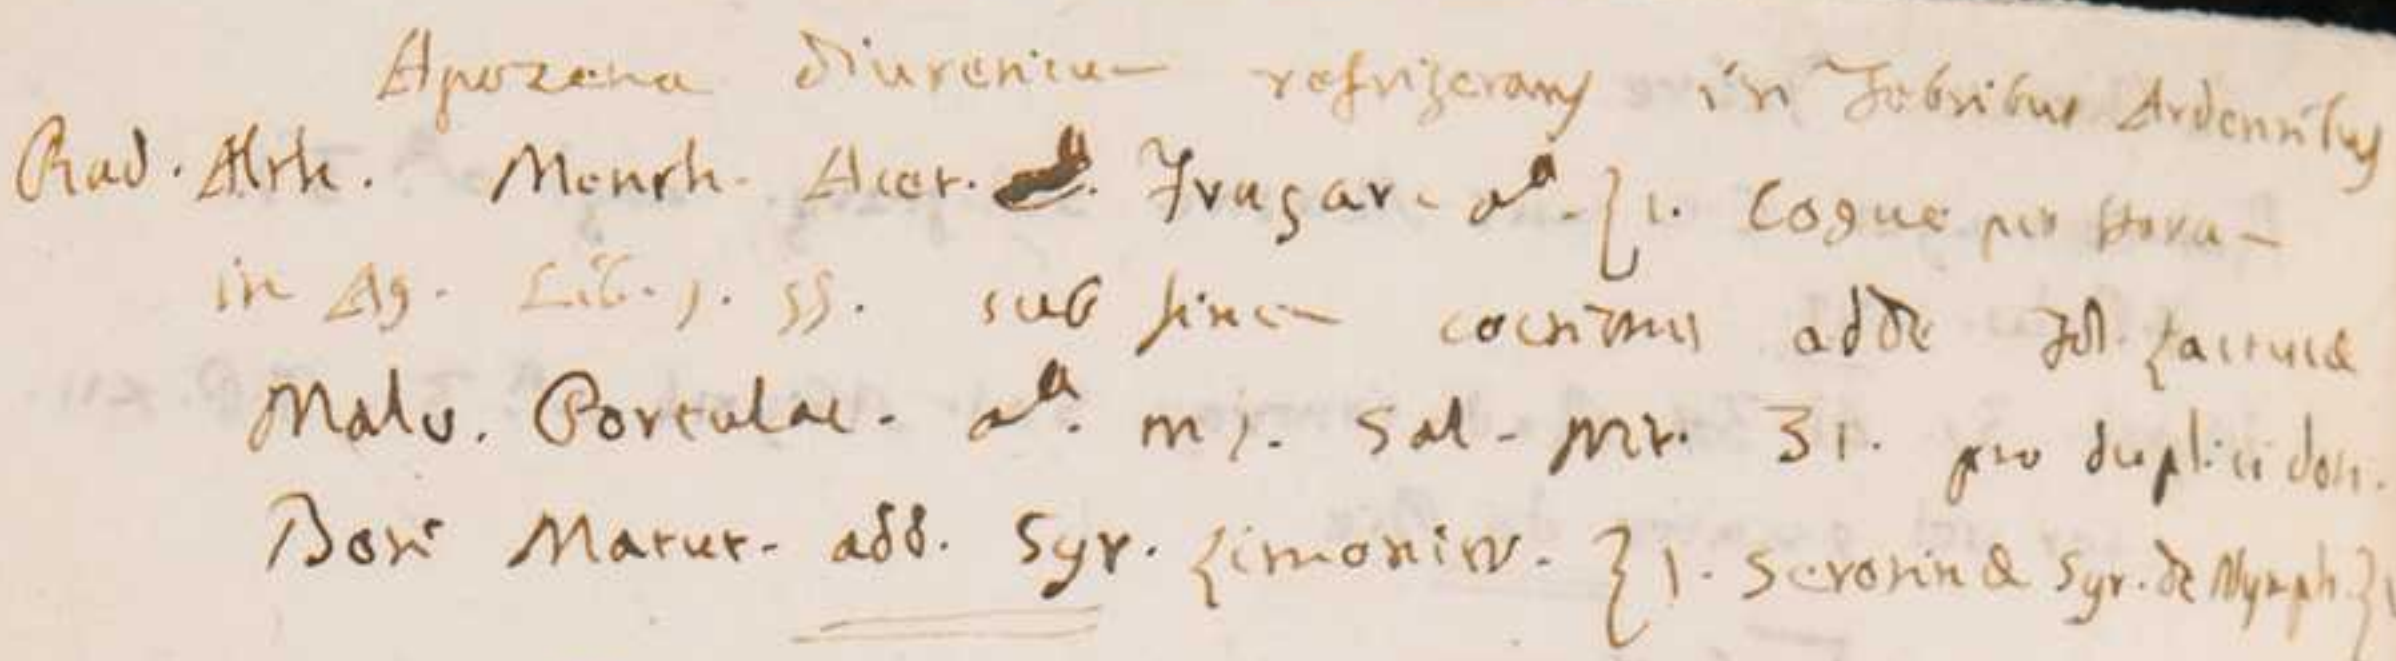 Apozema diureticu- refrigerans in Febribus Ardentibus
Rad. Alth. Menth. Acet. Fragar. aa. ℥1. Coque per Hora-
in Aq. Lib. j. ss. sub fine- coctionis adde fol. Lactucæ
Malv. Portulac. aa. m j. Sal. ntr. ʒ1. pro duplici dosi.
Mane Matut. add. Syr. Limoniw. ℥j. Serotinæ Syr. de Nymph. ℥